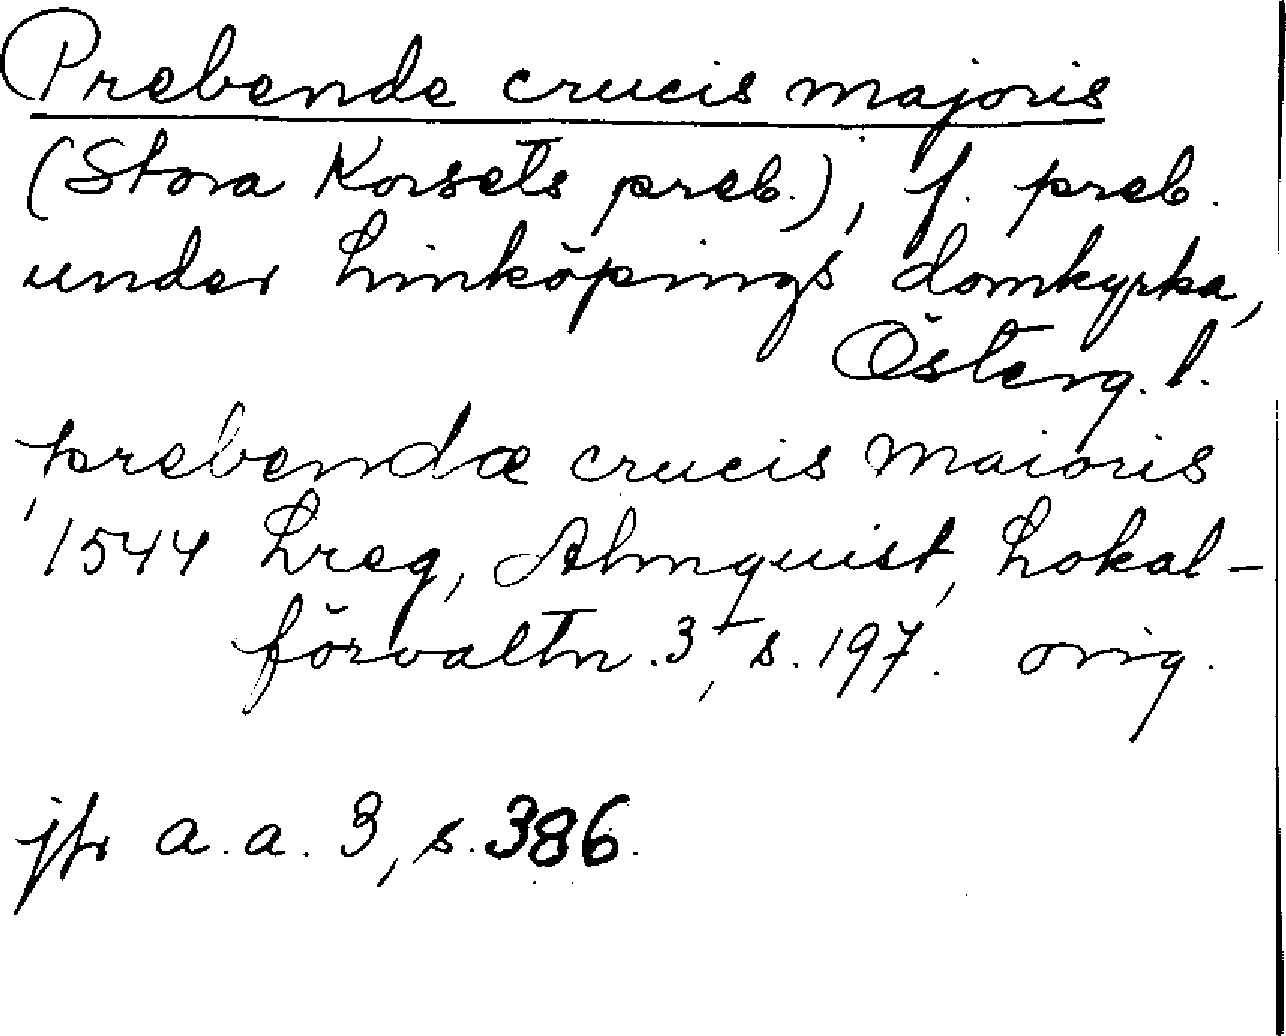 Prebende crucis majoris
(Stora Korsets preb.), f. preb.
under Linköpings domkyrka,
Österg. l.
prebendæ crucis maioris
1544 Lreg, Almquist, Lokal-
förvaltn. 3, s. 197. orig.
jfr a. a. 3, s. 386.